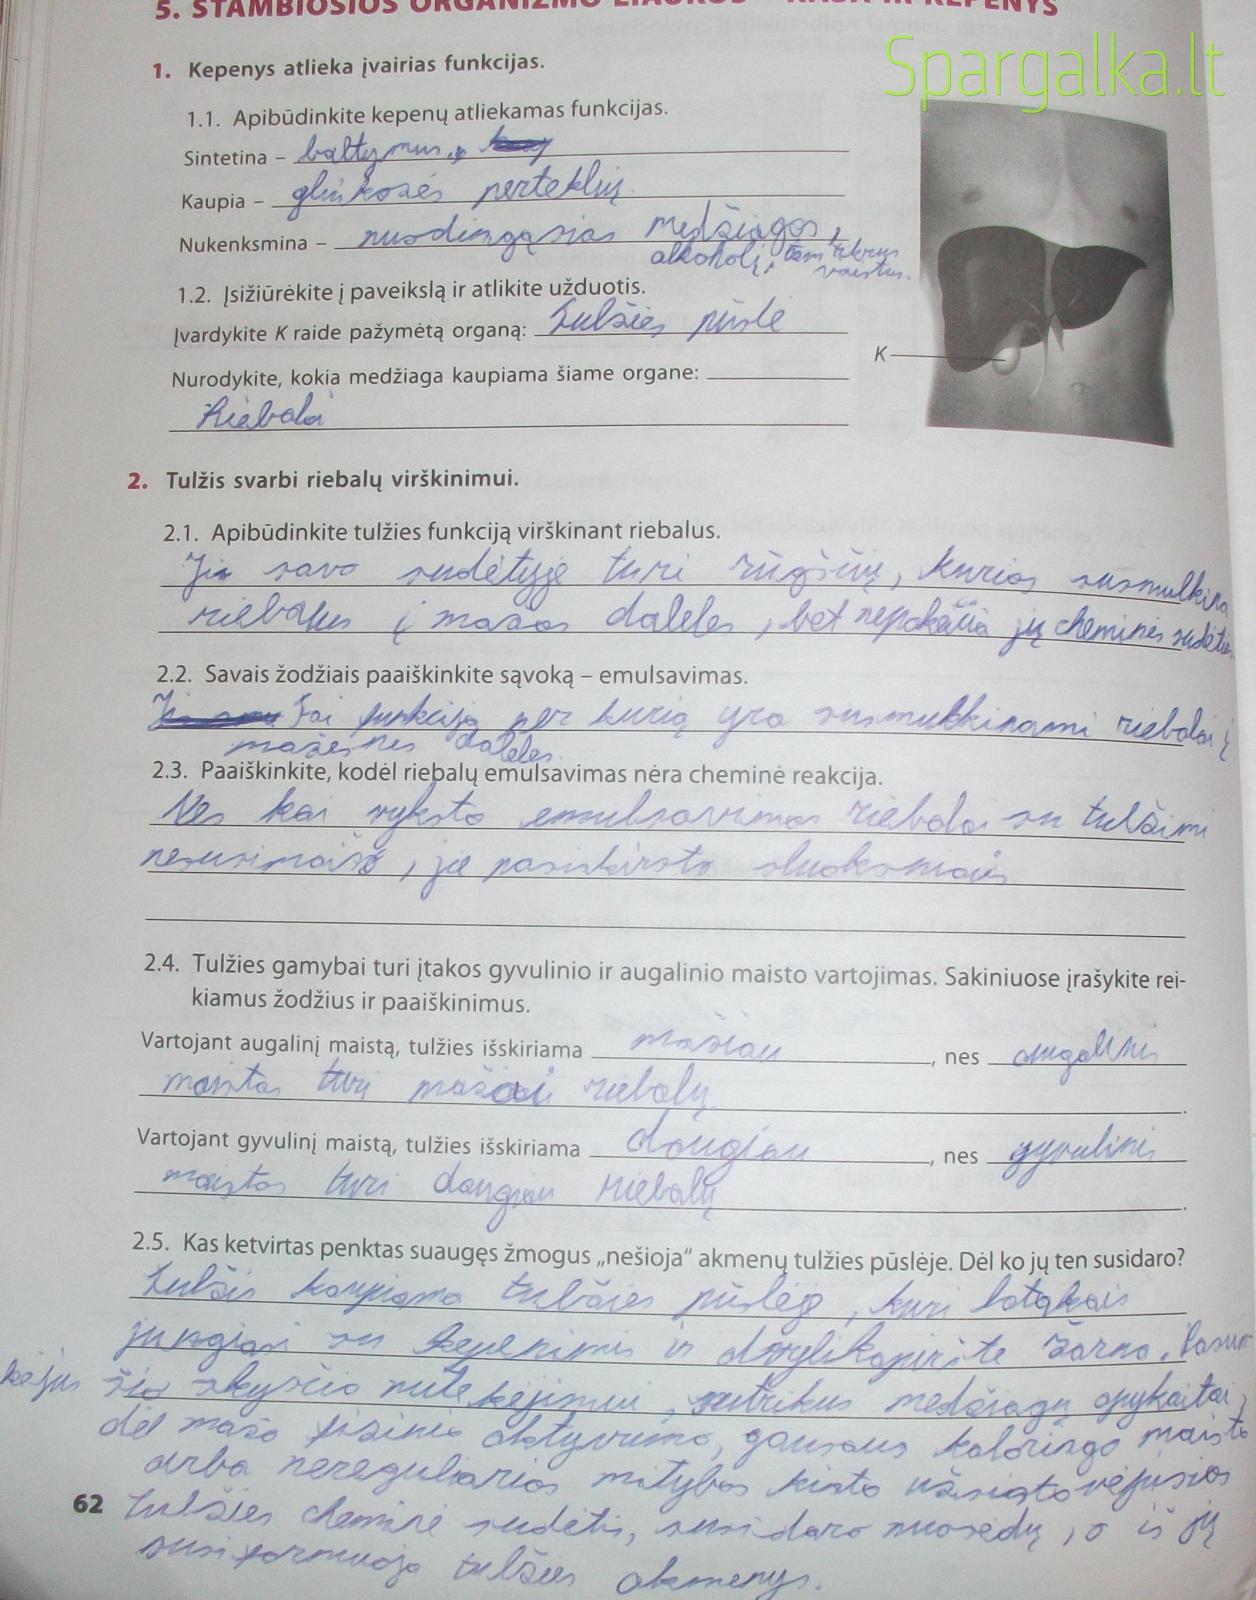 5. STAMBIOSIOS ORGANIZMO LIAUKOS – KASA IR KEPENYS
Spargalka.lt
1. Kepenys atlieka įvairias funkcijas.
1.1. Apibūdinkite kepenų atliekamas funkcijas.
Sintetina – baltymus,
Kaupia – gliukozės perteklių.
Nukenksmina – nuodingąsias medžiagas,
alkoholį, tam tikrus
vaistus.
1.2. Įsižiūrėkite į paveikslą ir atlikite užduotis.
Įvardykite K raide pažymėtą organą: Tulžies pūslė
K
Nurodykite, kokia medžiaga kaupiama šiame organe:
Riebalai
2. Tulžis svarbi riebalų virškinimui.
2.1. Apibūdinkite tulžies funkciją virškinant riebalus.
Ji savo sudėtyje turi rūgščių, kurios susmulkina
riebalus į mažas daleles, bet nepakeičia jų cheminės sudėties
2.2. Savais žodžiais paaiškinkite sąvoką – emulsavimas.
Tai funkcija per kurią yra susmulkinami riebalai į
mažesnes daleles.
2.3. Paaiškinkite, kodėl riebalų emulsavimas nėra cheminė reakcija.
Nes kai vyksta emulsavimas riebalai su tulžimi
nesusimaišo, jie pasiskirsto sluoksniais
2.4. Tulžies gamybai turi įtakos gyvulinio ir augalinio maisto vartojimas. Sakiniuose įrašykite rei-
kiamus žodžius ir paaiškinimus.
Vartojant augalinį maistą, tulžies išskiriama mažiau, nes augalinis
maistas turi mažai riebalų.
Vartojant gyvulinį maistą, tulžies išskiriama daugiau, nes gyvulinis
maistas turi daugiau riebalų.
2.5. Kas ketvirtas penktas suaugęs žmogus „nešioja“ akmenų tulžies pūslėje. Dėl ko jų ten susidaro?
Tulžis kaupiama tulžies pūslėje, kuri latakais
jungiasi su kepenimis ir dvylikapiršte žarna. Pasun-
kėjus šio skysčio nutekėjimui, sutrikus medžiagų apykaitai,
dėl mažo fizinio aktyvumo, gausaus kaloringo maisto
arba nereguliarios mitybos kinta užsistovėjusios
62 tulžies cheminė sudėtis, susidaro nuosėdų, o iš jų
susiformuoja tulžies akmenys.